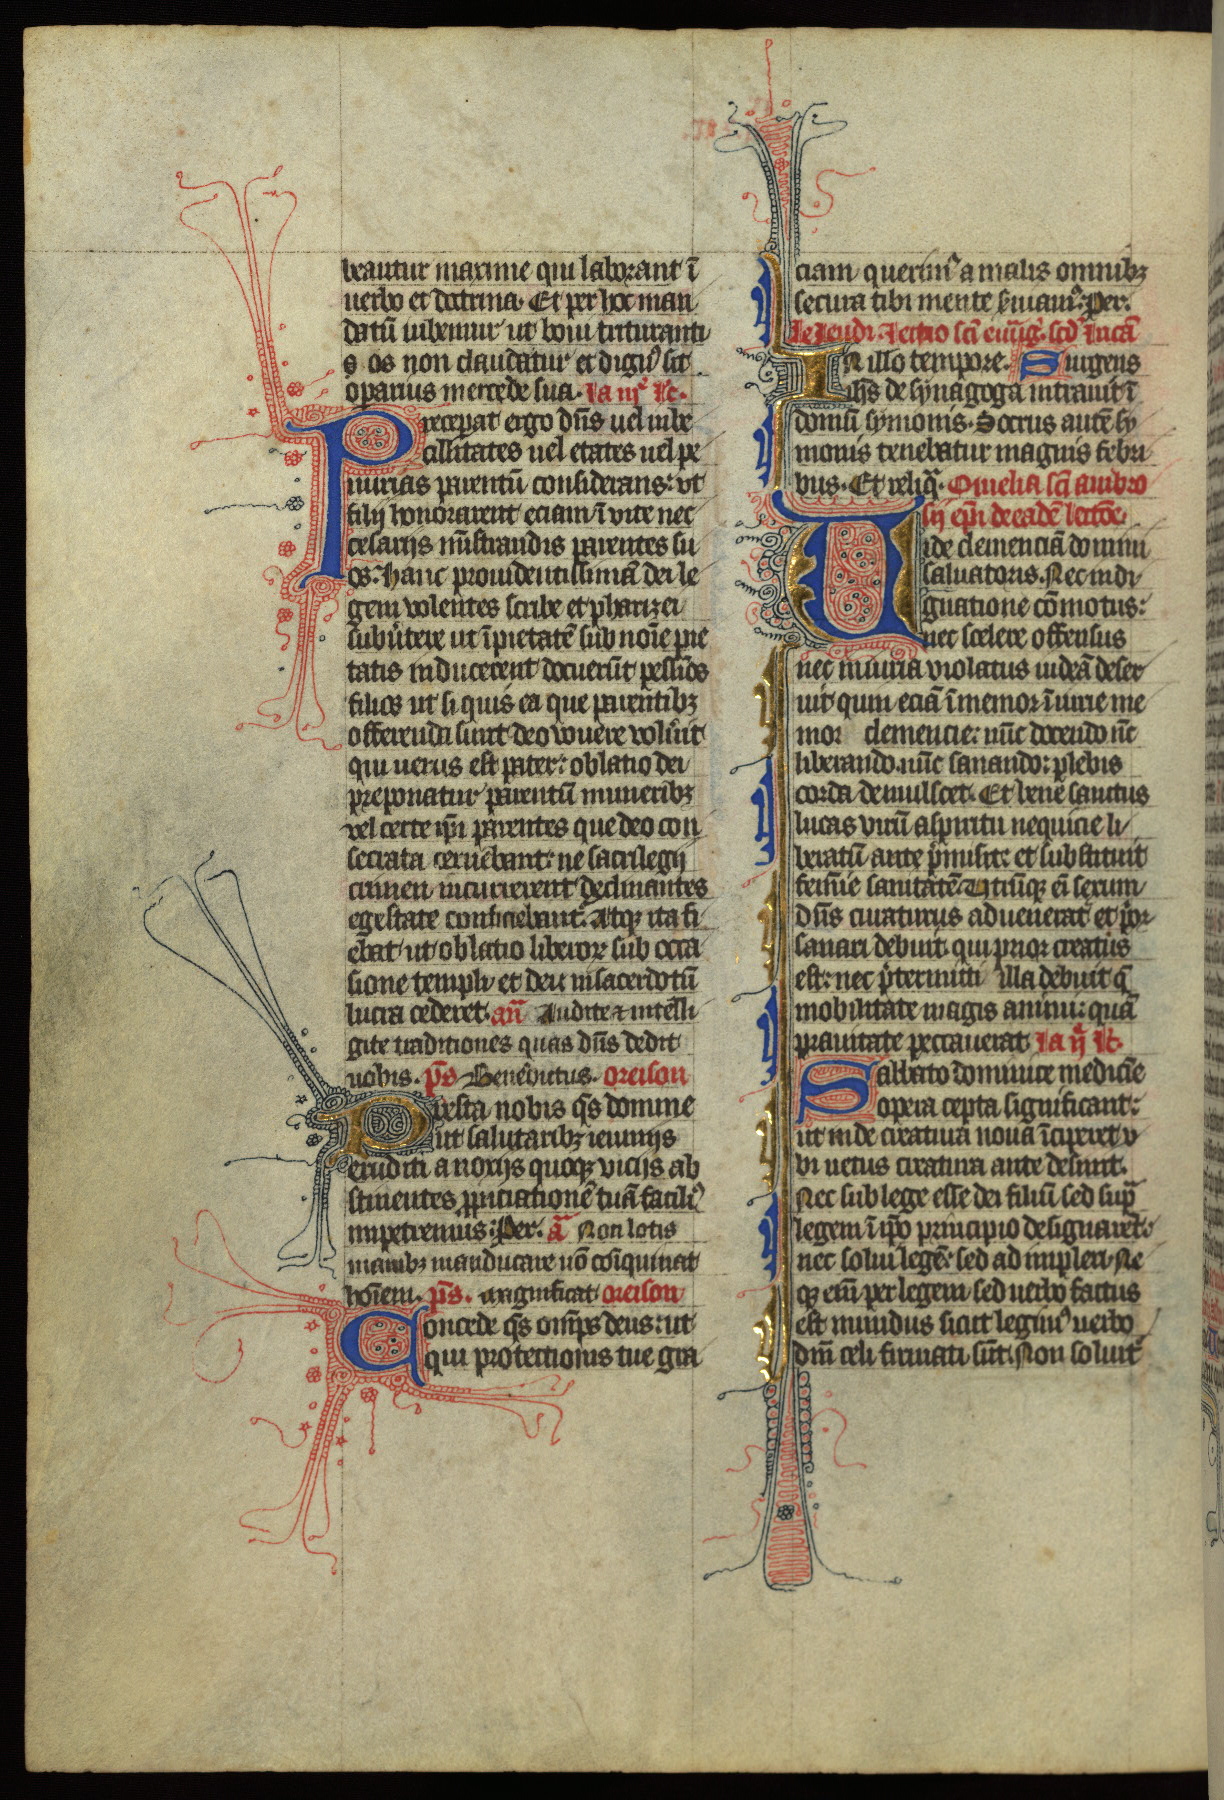 beantur maxime qui laborant ī
uerbo et doctrina. Et per hoc man
datū iubemur ut boui trituranti
s os non claudatur et dignꝰ sit
operarius mercede sua. la iijᵉ lc̄.
Preceperat ergo dn̄s uel inbe
cillitates uel etates uel pe
nurias parentū considerans: ut
filij honorarent eciam ī vite nec
cesarijs mīstrandis parentes su
os: hanc prouidentissimā dei le
gem volentes scribe et pharizei
subuertere ut īpietatē sub noīe pie
tatis inducerent docuerūt pessīōs
filios ut si quis ea que parentibꝫ
offerenda sunt deo vouere voluīt
qui uerus est pater: oblatio dei
preponatur parentū muneribꝫ
vel certe ip̄i parentes que deo con
secrata cernebant: ne sacrilegij
crimen incurrerent declinantes
egestate conficiebant. Atqꝫ ita fi
ebat ut oblatio liberoꝝ sub occa
sione templi et dei in sacerdotū
lucra cederet. an̄ Audite ⁊ intelli
gite traditiones quas dn̄s dedit
uobis. ps̄ Benedictus. oreison
Presta nobis qs̄ domine
ut salutaribꝫ ieiunijs
eruditi a noxijs quoqꝫ vicijs ab
stinentes ꝓpiciationē tuā faciliꝰ
impetremus: Per. ā Non lotis
manibꝫ manducare nō coīquinat
hoīem. ps̄. Magnificat oreison
Concede qs̄ omīps deus: ut
qui protectionis tue gra
ciam querimꝰ a malis omnibꝫ
secura tibi mente seruiamꝰ: Per.
le Jeudi. Lectio sc̄i euu̅g. scd̄ lucā
In illo tempore. Surgens
ih̄s de synagoga intrauit ī
domū symonis. Socrus autē sy
monis tenebatur magnis febri
bus. Et reliq̄. Omelia sc̄i ambro
sij ep̄i de eadē lectōe.
Uide clemenciā domini
saluatoris. Nec indi
gnatione cōmotus:
nec scelere offensus
nec iniuria violatus iudeā deser
uit quin eciā īmemor īiurie me
mor clemencie: nūc docendo nūc
liberando. nūc sanando: plebis
corda demulscet. Et bene sanctus
lucas virū a spiritu nequicie li
beratū ante p̄misit: et substituit
femīe sanitatē. Utrūqꝫ eī sexum
dn̄s curaturus aduenerat et p̄or
sanari debuit. qui prior creatus
est: nec p̄termitti illa debuit q̄
mobilitate magis animi: quā
prauitate peccauerat la ijᵉ lc̄.
Sabbato dominice medicīe
opera cepta significant:
ut inde creatura noua īciperet v
bi uetus creatura ante desinit.
Nec sub lege esse dei filiū sed supᵃ
legem ī ip̄o principio designaret.
nec solui legē: sed adimpleri. Ne
qꝫ eīm per legem sed uerbo factus
est mundus sicut legimꝰ uerbo
dn̄i celi firmati sūt. Non soluit̄